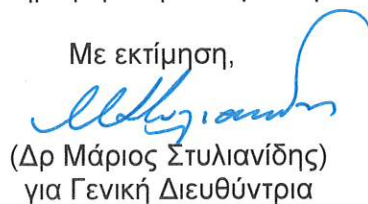 Με εκτίμηση,
(Δρ Μάριος Στυλιανίδης)
για Γενική Διευθύντρια